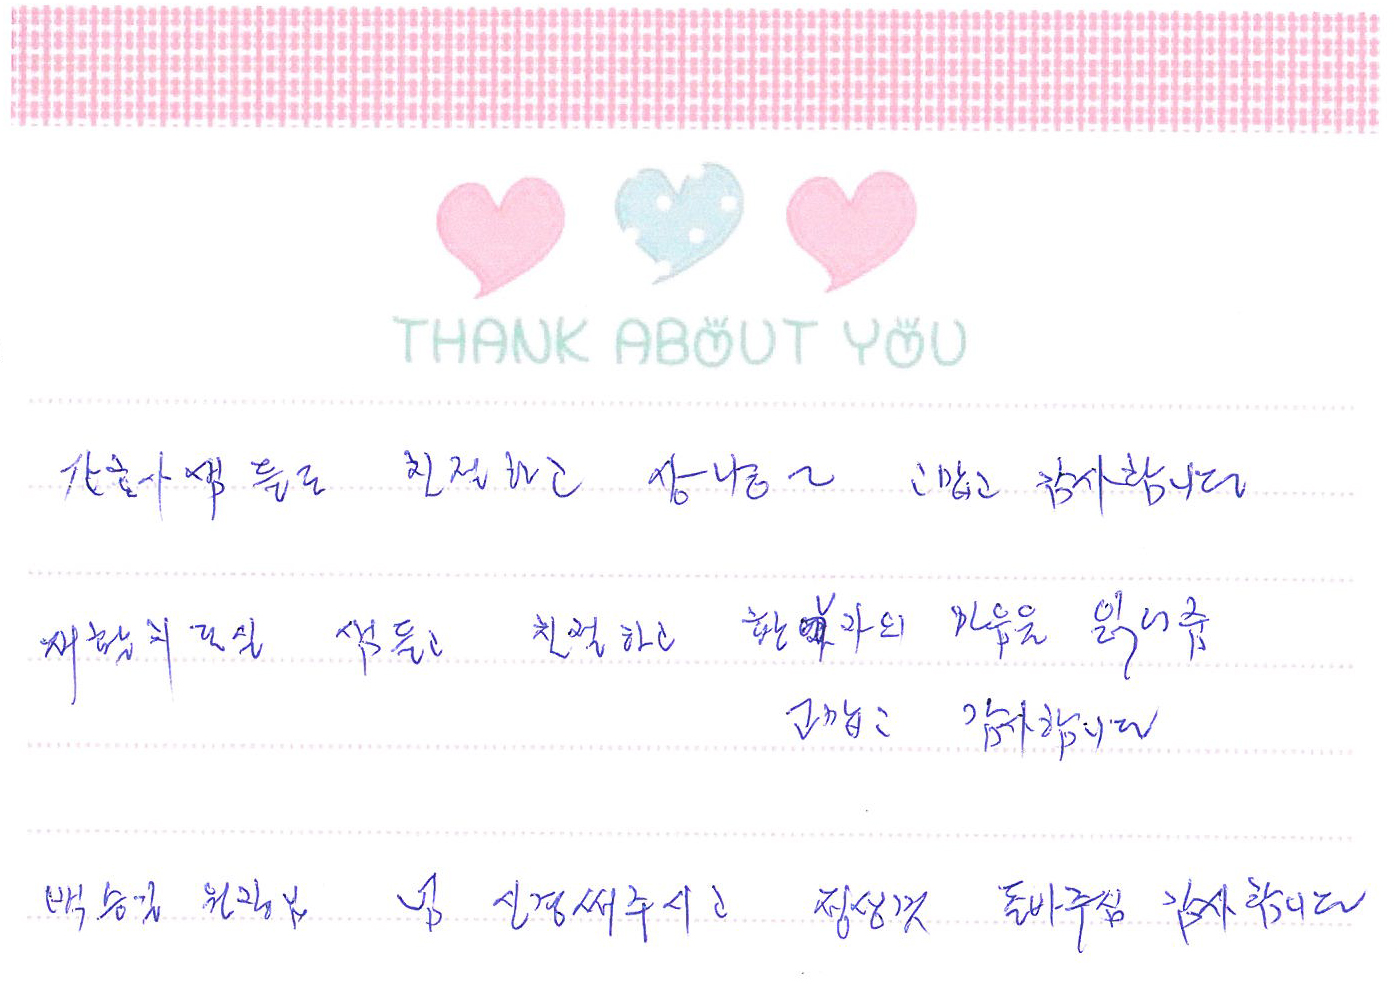 THANK ABOUT YOU
간호사샘들도 친절하고 상냥하고 고맙고 감사합니다
재활치료실 샘들도 친절하고 환자의 마음을 읽어줌
고맙고 감사합니다
백승길 원장님 넘 신경써주시고 정성껏 돌바주심 감사합니다